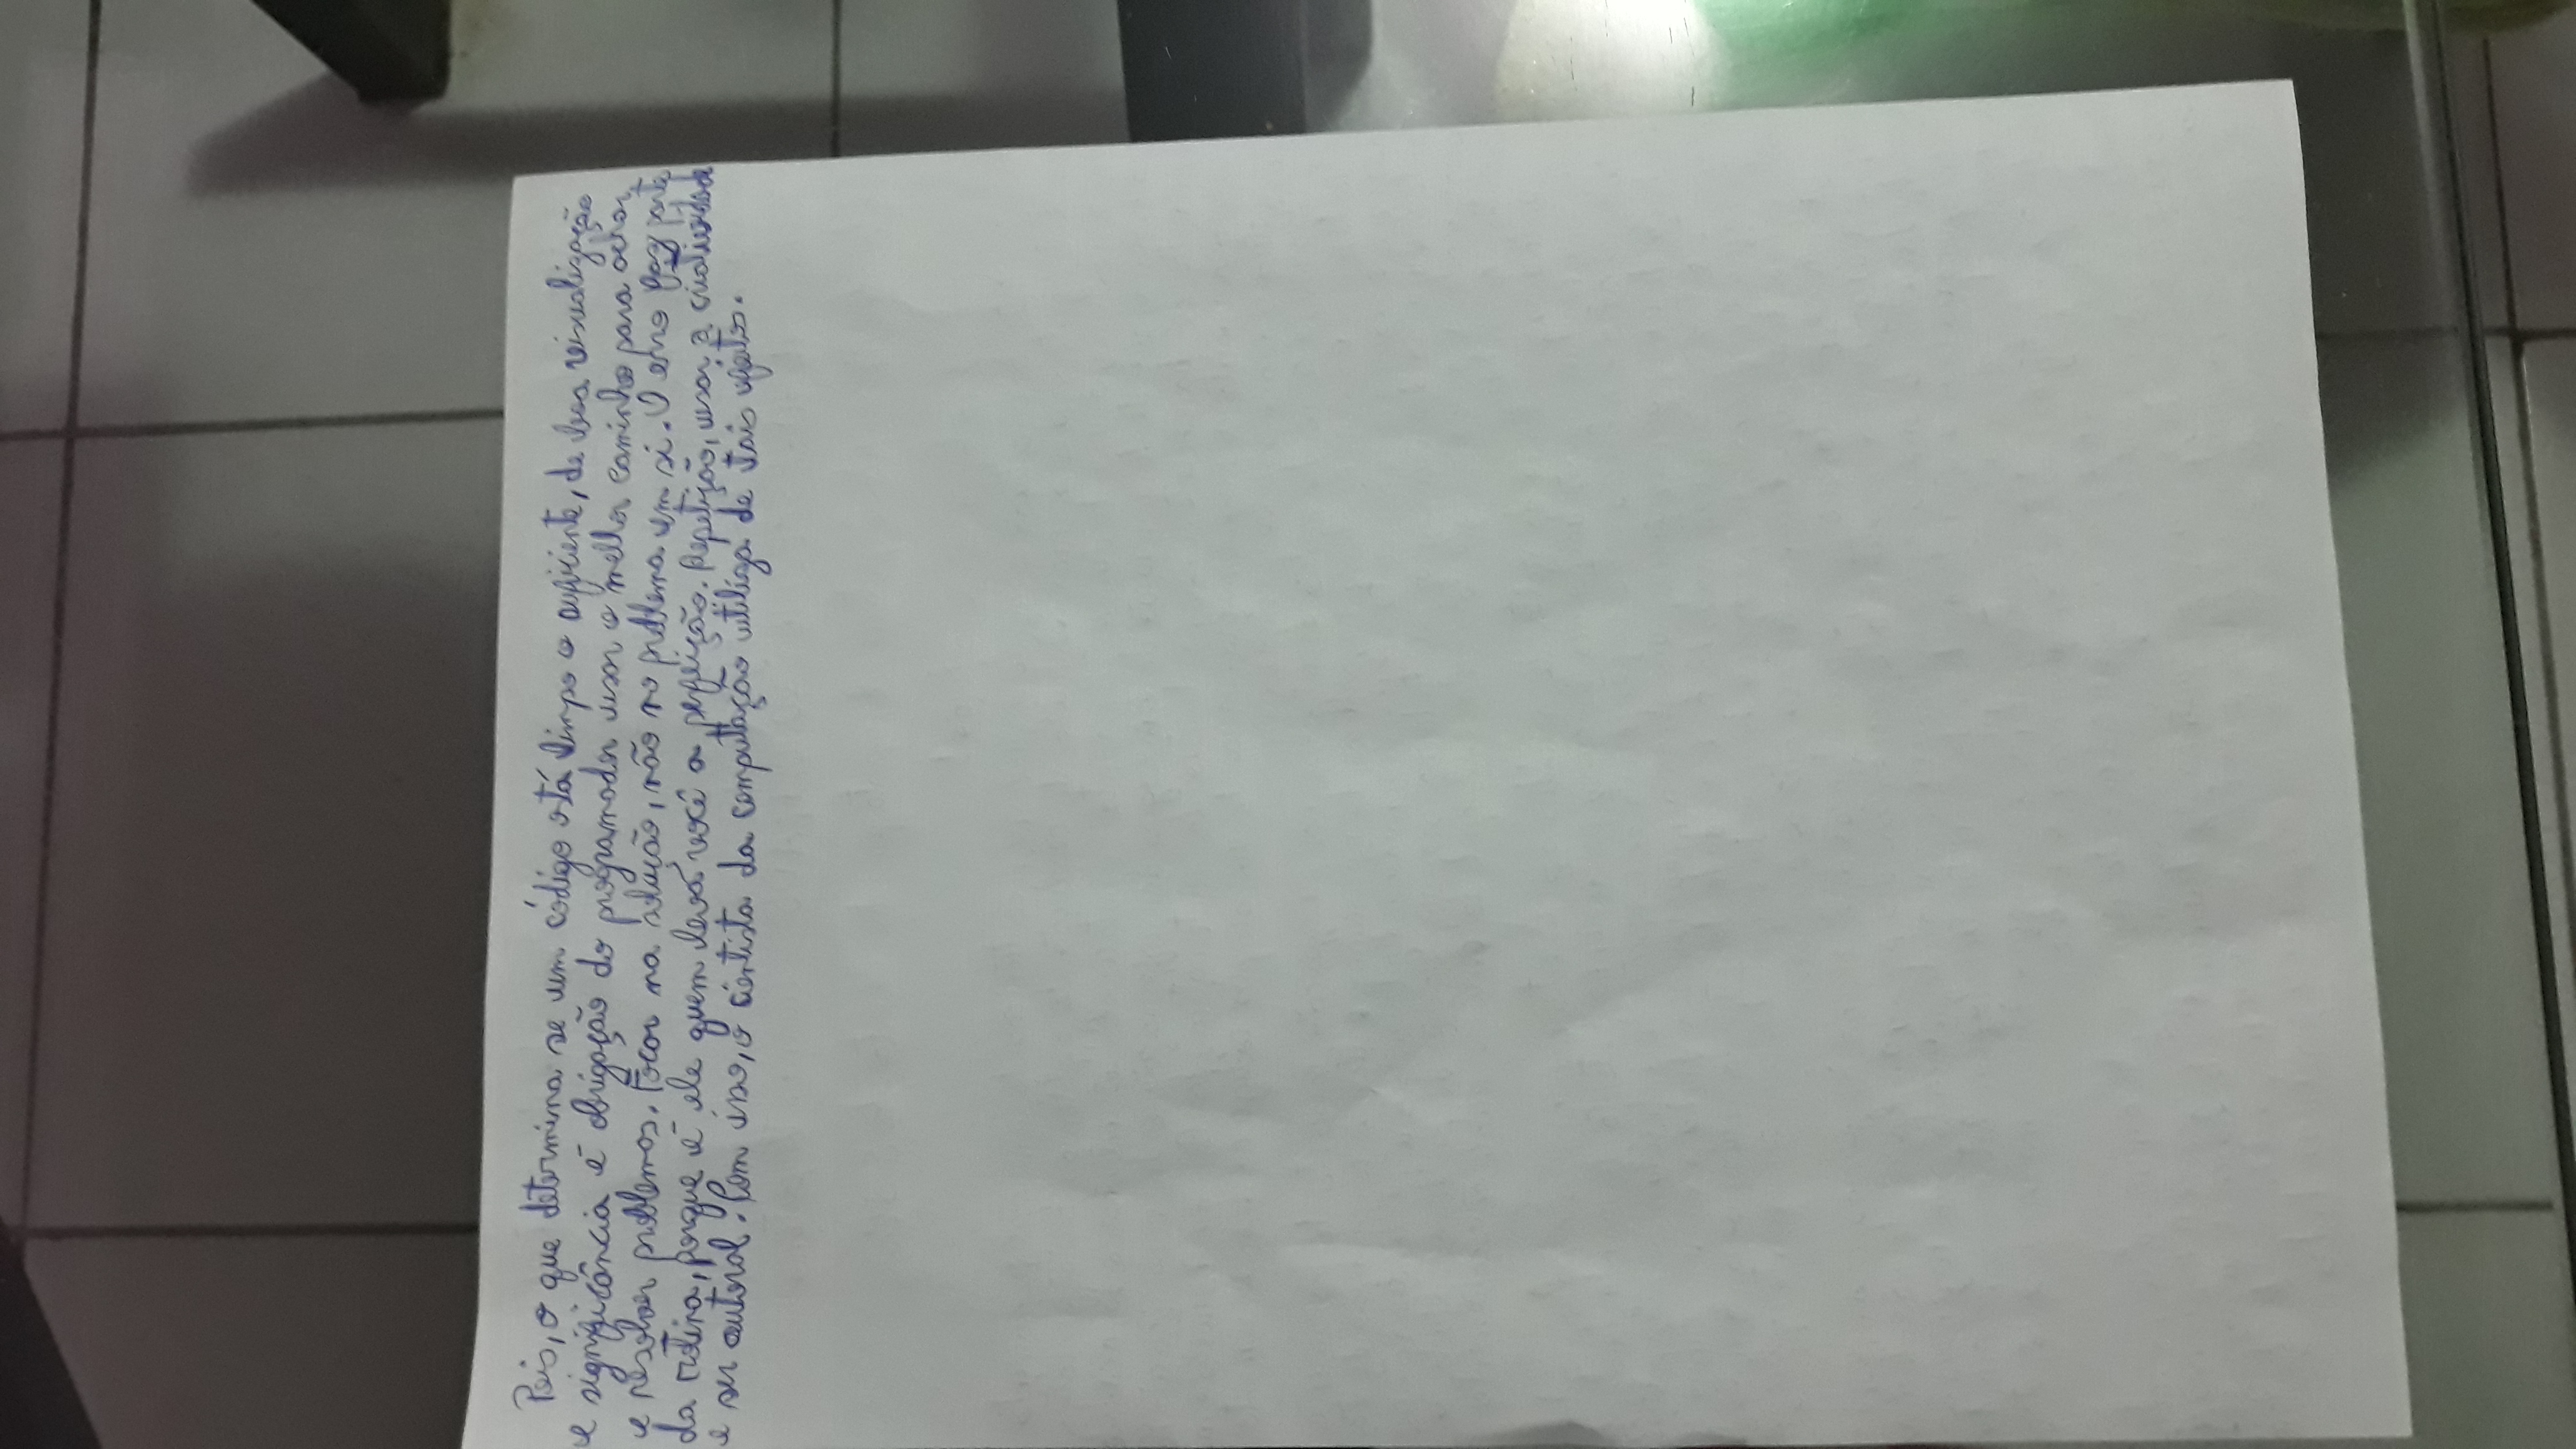 Pois, o que determina se um código está limpo o suficiente, de boa visualização
e significância é obrigação do programador usar o melhor caminho para achar
e resolver problemas. Focar na solução, não no problema em si. O erro faz parte
da rotina, porque é ele quem levá você a perfeição. Repetição, usar a criatividade
e ser autoral. Com isso, o cientista da computação utiliza de tais efeitos.